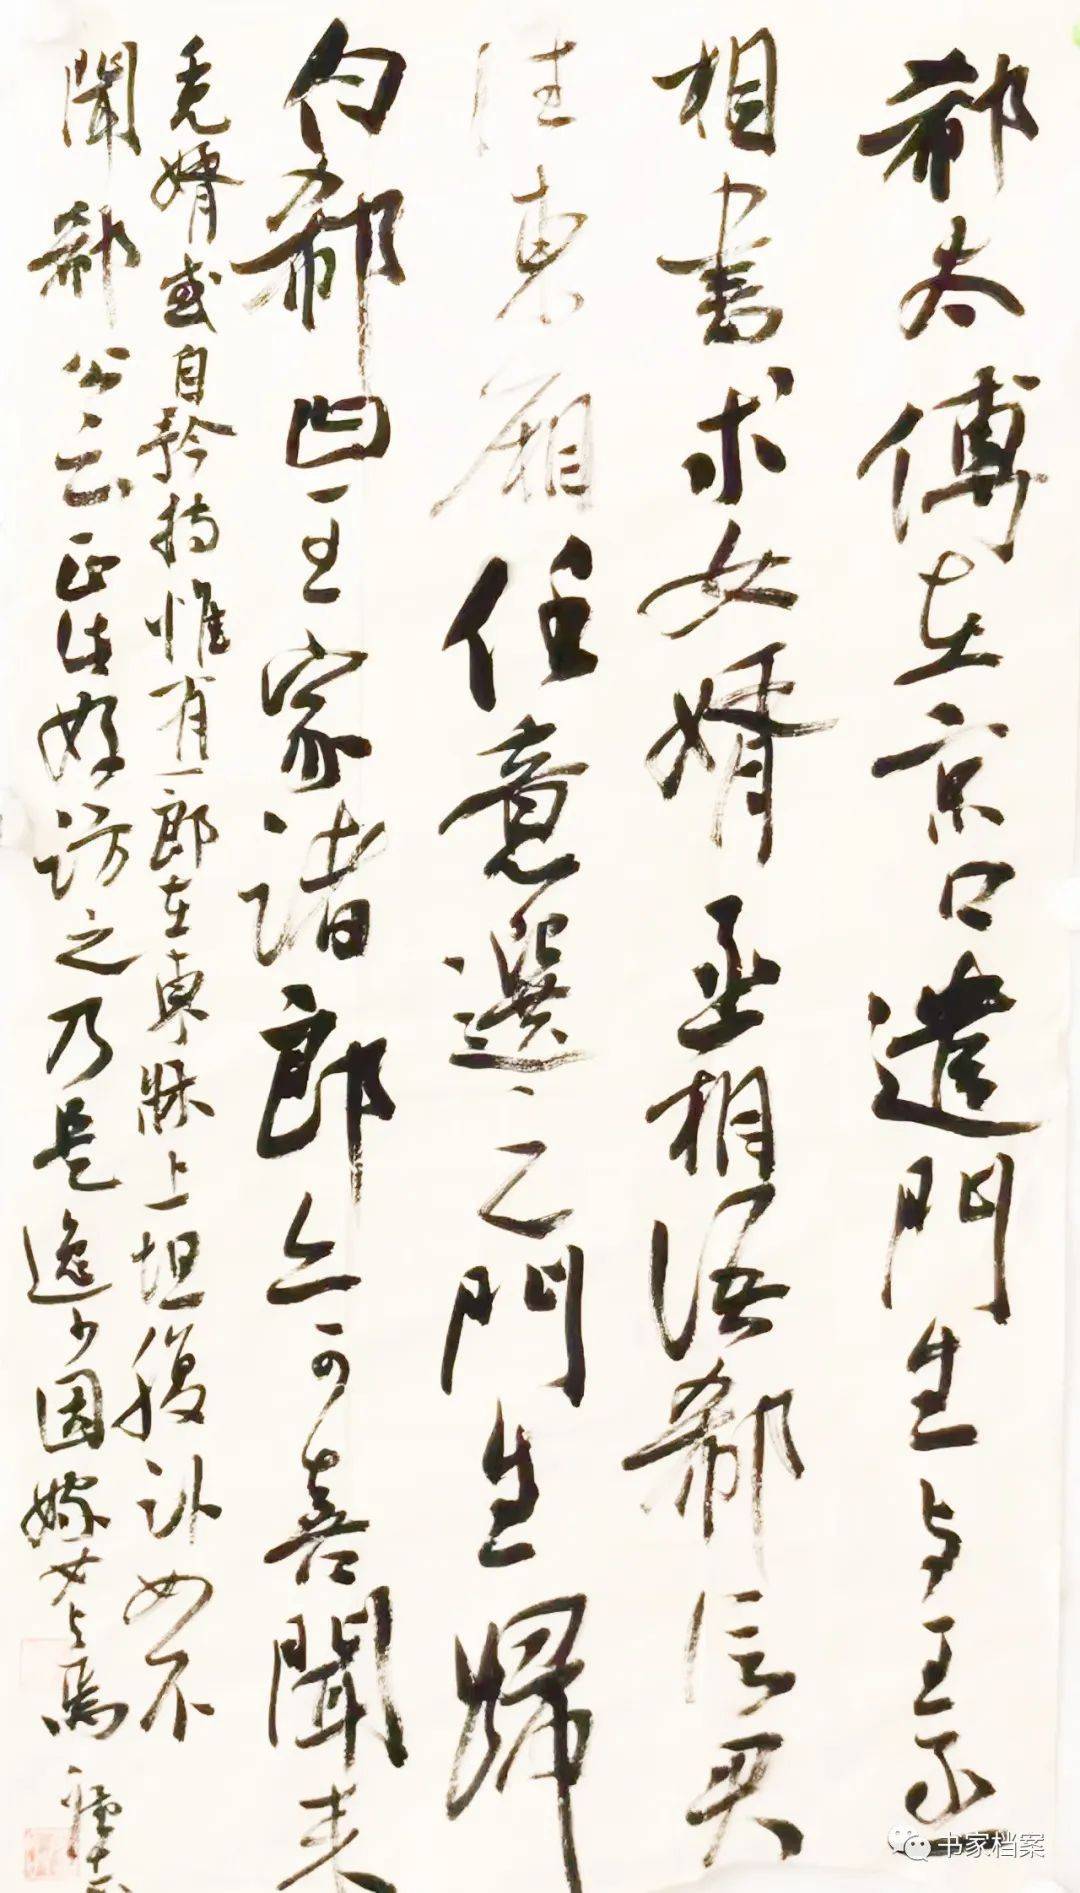 郗太傅在京口遣門生与王丞
相書求女婿丞相語郗信君
往東廂任意選之門生歸
白郗曰王家諸郎亦可喜聞来
覓婿或自矜持惟有一郎在東牀上坦腹卧如不
聞郗公云正此好訪之乃是逸少因嫁女与焉
书家档案